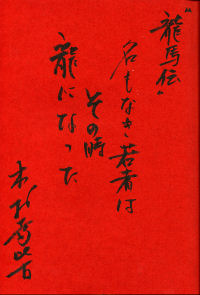 “龍馬伝”
名もなき若者は
その時
龍になった